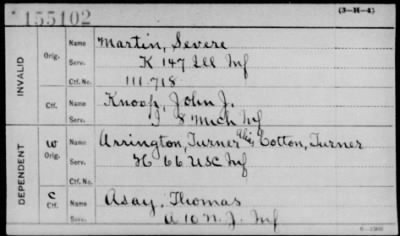 155102
(3-H-4)
INVALID
Orig.
Name Martin, Severe
Serv. K 147 Ill Inf
Ctf. No. 111.718
Ctf.
Name Knoop, John J.
Serv. I 8 Mich Inf
DEPENDENT
W
Orig.
Name Arrington, Turner alias Cotton, Turner
Serv. H 66 USC Inf
Ctf. No.
C
Ctf.
Name Asay, Thomas
Serv. A 10 N. J. Inf